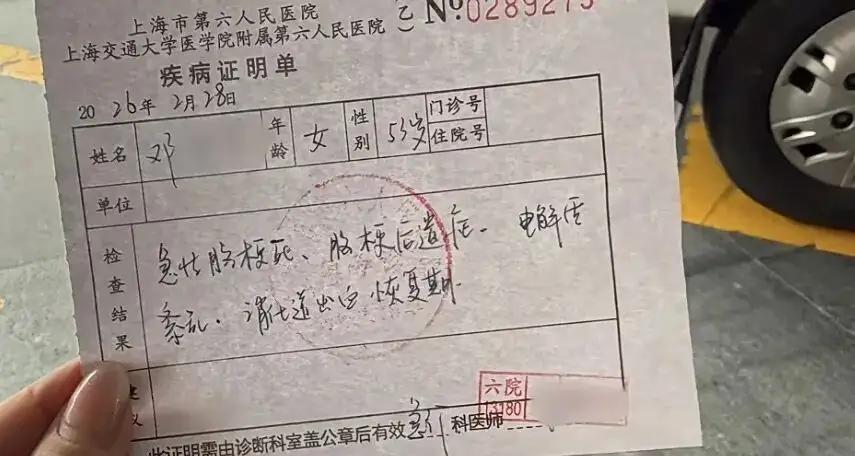 上海市第六人民医院
上海交通大学医学院附属第六人民医院
(乙) No.0289275
疾病证明单
2026年2月28日
姓名 邓 年龄 女 性别 53岁 门诊号 住院号
单位
检查结果 急性脑梗死、脑梗后遗症、电解质
紊乱、消化道出血恢复期
六院
3180
此证明需由诊断科室盖公章后有效 急 科医师